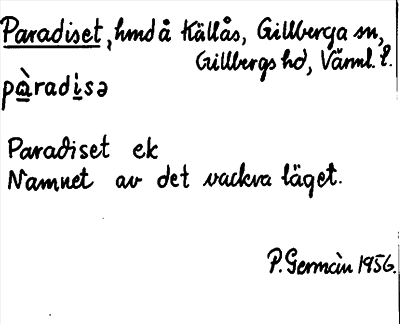 Paradiset, hmd å Källås, Gillberga sn,
Gillbergs hd, Värml. l.
pàradisə
Paradiset ek
Namnet av det vackra läget.
P. Germàin 1956.